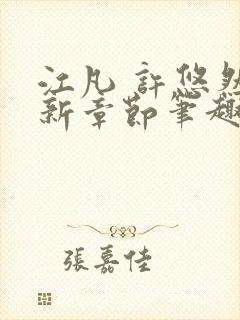 江凡 許悠然
新章節筆趣
張嘉佳